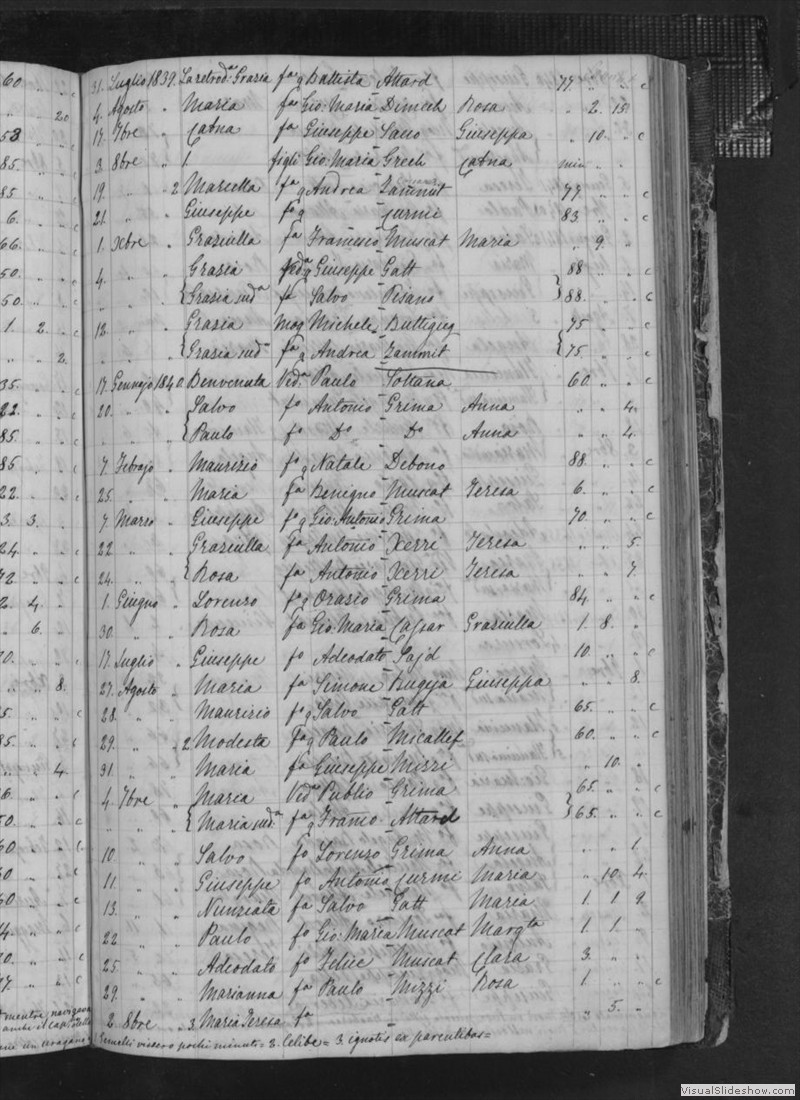 60. " " c 31. Luglio 1839. La retrod.a Grazia fa q Battista Attard 77. " " c
" " 20 4. Agosto " Maria fa Gio: Maria Dimech Rosa " 2. 15.
58 " " c 17. 7bre " Catna fa Giuseppe Giuseppa " 10. " c
85. " " c 3. 8bre " 1 figli Gio: Maria Grech Catna min " "
85 " " c 19. " " 2 Marietta fa q Andrea Zammit 77. " " c
6. " " c 21. " " Giuseppe fo q Curmi 83 " " c
66. " " c 1. Xbre " Graziulla fa Francesco Muscat Maria " 9. "
50. " " c 4. " " Grazia Ved.a q Giuseppe Gatt 88 " " c
50. " " c " " " { Grazia sud.a fa Salvo Pisano } 88. " " c
1. 2. " c 12. " " Grazia mog Michele Buttigieg 75 " " c
" " 2. " " " { Grazia sud.a fa q Andrea Zammit { 75. " " c
35. " " c 17. Gennajo 1840 Benvenuta Ved.a Paulo Soltana 60 " " c
22. " " c 20. " " Salvo fo Antonio Grima Anna " " 4.
85. " " c " " " { Paulo fo Do Do Anna " " 4.
85 " " c 7. Febrajo " Maurizio fo q Natale Debono 88. " " c
22. " " c 25. " " Maria fa Benigno Muscat Teresa 6. " " c
3. 3. " 7. Marzo " Giuseppe fo q Gio: Antonio Grima 70. " " c
24. " " c 22. " " Graziulla fa Antonio Xerri Teresa " " 5.
72 " " c 24. " " { Rosa fa Antonio Xerri Teresa " " 7.
2. 4. " 1. Giugno " Lorenzo fo q Orazio Grima 84 " " c
" 6. " 30. " " Rosa fa Gio: Maria Cassar Graziulla 1. 8. "
70. " " c 17. Luglio " Giuseppe fo Adeodato Sajd 10. " " c
" " 8. 27. Agosto " Maria fa Simone Bugeja Giuseppa " " 8.
5. " " c 28. " " Maurizio fo q Salvo Gatt 65. " " c
85. " " c 29. " " 2. Modesta fa q Paulo Micallef 60. " " c
" " 4 31. " " Maria fa Giuseppe Mizzi " 10. "
6. " " c 4. 7bre " Maria Ved.a Publio Grima 65. " " c
50. " " c " " " { Maria sud.a fa q Franco Attard } 65. " " c
60 " " c 10. " " Salvo fo Lorenzo Grima Anna " " 1
50 " " c 11. " " Giuseppe fo Antonio Curmi Maria " 10. 4.
60 " " c 13. " " Nunziata fa Salvo Gatt Maria 1. 1 9.
4. " " c 22 " " Paulo fo Gio: Maria Muscat Margta 1. 1. "
0. " " c 25. " " Adeodato fo Felice Muscat Clara 3. " "
7. " " c 29. " " Marianna fa Paulo Mizzi Rosa 1 " " c
mentre navigava
2. 8bre " 3. Maria Teresa fa " 5. "
1 Gemelli vissero pochi minuti = 2. Celibe = 3. ignotis ex parentibus =
VisualSlideshow.com